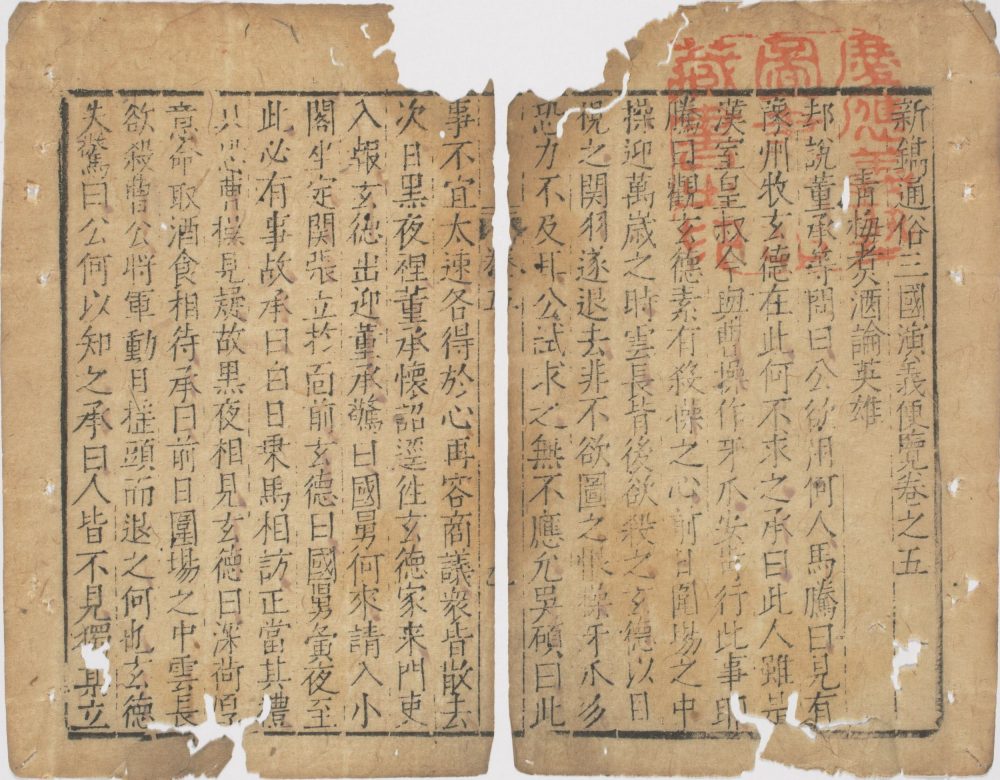 慶應義塾
圖書館
藏書
新鐫通俗三國演義便覽卷之五
青梅煮酒論英雄
却說董承等問曰公欲用何人馬騰曰見有
豫州牧玄德在此何不求之承曰此人雖是
漢室皇叔今與曹操作牙爪安肯行此事耶
騰曰觀玄德素有殺操之心前日圍場之中
操迎萬歲之時雲長背後欲殺之玄德以目
視之関羽遂退去非不欲圖之恨操牙爪多
恐力不及耳公試求之無不應允吳碩曰此
卷五
事不宜太速各得於心再容商議衆皆散去
次日黑夜裡董承懷詔逕徃玄德家来門吏
入報玄德出迎董承驚曰國舅何來請入小
閣坐定関張立於面前玄德曰國舅夤夜至
此必有事故承曰白日乗馬相訪正當其禮
只恐曹操見疑故黑夜相見玄德曰深荷厚
意命取酒食相待承曰前日圍場之中雲長
欲殺曹公將軍動目揺頭而退之何也玄德
失驚曰公何以知之承曰人皆不見獨某立